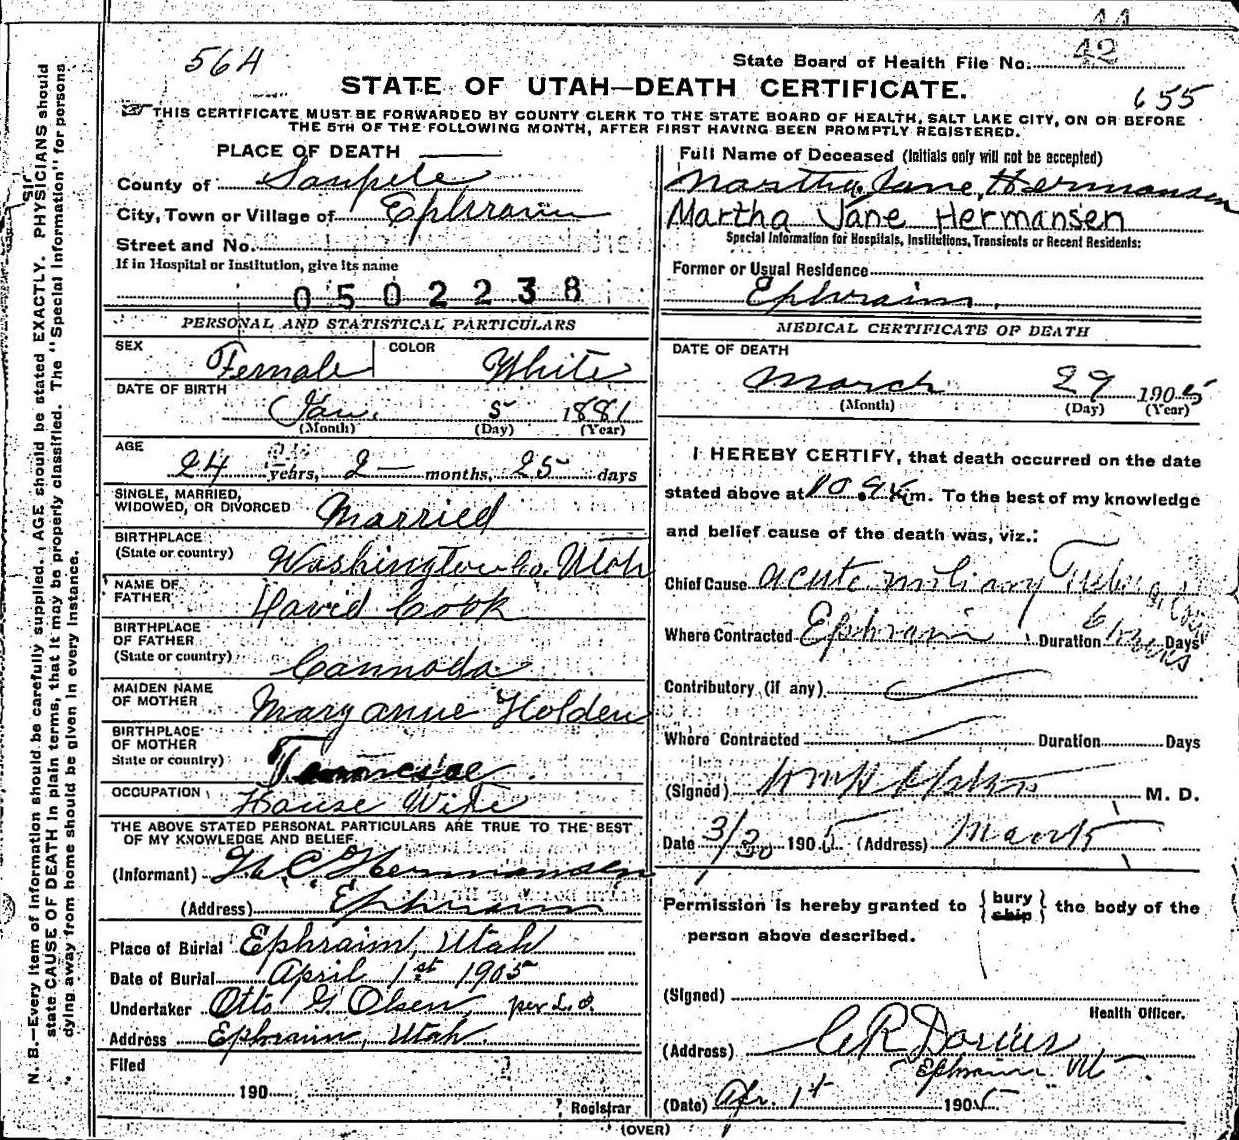 44
564
State Board of Health File No. 42
STATE OF UTAH—DEATH CERTIFICATE.
655
THIS CERTIFICATE MUST BE FORWARDED BY COUNTY CLERK TO THE STATE BOARD OF HEALTH, SALT LAKE CITY, ON OR BEFORE
THE 5TH OF THE FOLLOWING MONTH, AFTER FIRST HAVING BEEN PROMPTLY REGISTERED.
N. B.—Every item of Information should be carefully supplied. AGE should be stated EXACTLY. PHYSICIANS should
state CAUSE OF DEATH in plain terms, that it may be properly classified. The "Special Information" for persons
dying away from home should be given in every instance.
PLACE OF DEATH
County of Sanpete
City, Town or Village of Ephraim
Street and No.
If in Hospital or Institution, give its name
0502238
PERSONAL AND STATISTICAL PARTICULARS
SEX Female COLOR White
DATE OF BIRTH
Jan. 5 1881
(Month) (Day) (Year)
AGE
24 years, 2 months, 25 days
SINGLE, MARRIED,
WIDOWED, OR DIVORCED Married
BIRTHPLACE
(State or country) Washington Co. Utah
NAME OF
FATHER David Cook
BIRTHPLACE
OF FATHER
(State or country) Cannada
MAIDEN NAME
OF MOTHER Mary anne Holden
BIRTHPLACE
OF MOTHER
State or country) Tennessee
OCCUPATION House Wife
THE ABOVE STATED PERSONAL PARTICULARS ARE TRUE TO THE BEST
OF MY KNOWLEDGE AND BELIEF
(Informant) C Hermansen
(Address) Ephraim
Place of Burial Ephraim, Utah
Date of Burial April 1st 1905
Undertaker Otto G. Olsen, per L.O.
Address Ephraim, Utah.
Filed
190
Registrar
Full Name of Deceased (Initials only will not be accepted)
Martha Jane Hermansen
Martha Jane Hermansen
Special Information for Hospitals, Institutions, Transients or Recent Residents:
Former or Usual Residence
Ephraim,
MEDICAL CERTIFICATE OF DEATH
DATE OF DEATH
March 29 1905
(Month) (Day) (Year)
I HEREBY CERTIFY, that death occurred on the date
stated above at 10 m. To the best of my knowledge
and belief cause of the death was, viz.:
Chief Cause acute miliary Tuberculosis
Where Contracted Ephraim Duration 6 weeks Days
Contributory (if any)
Where Contracted Duration Days
(Signed) M. D.
Date 3/30 1905 (Address) Manti
Permission is hereby granted to { bury ship } the body of the
person above described.
(Signed)
Health Officer.
(Address) C R Dorius
Ephraim Ut
(Date) Apr. 1st 1905
(OVER)